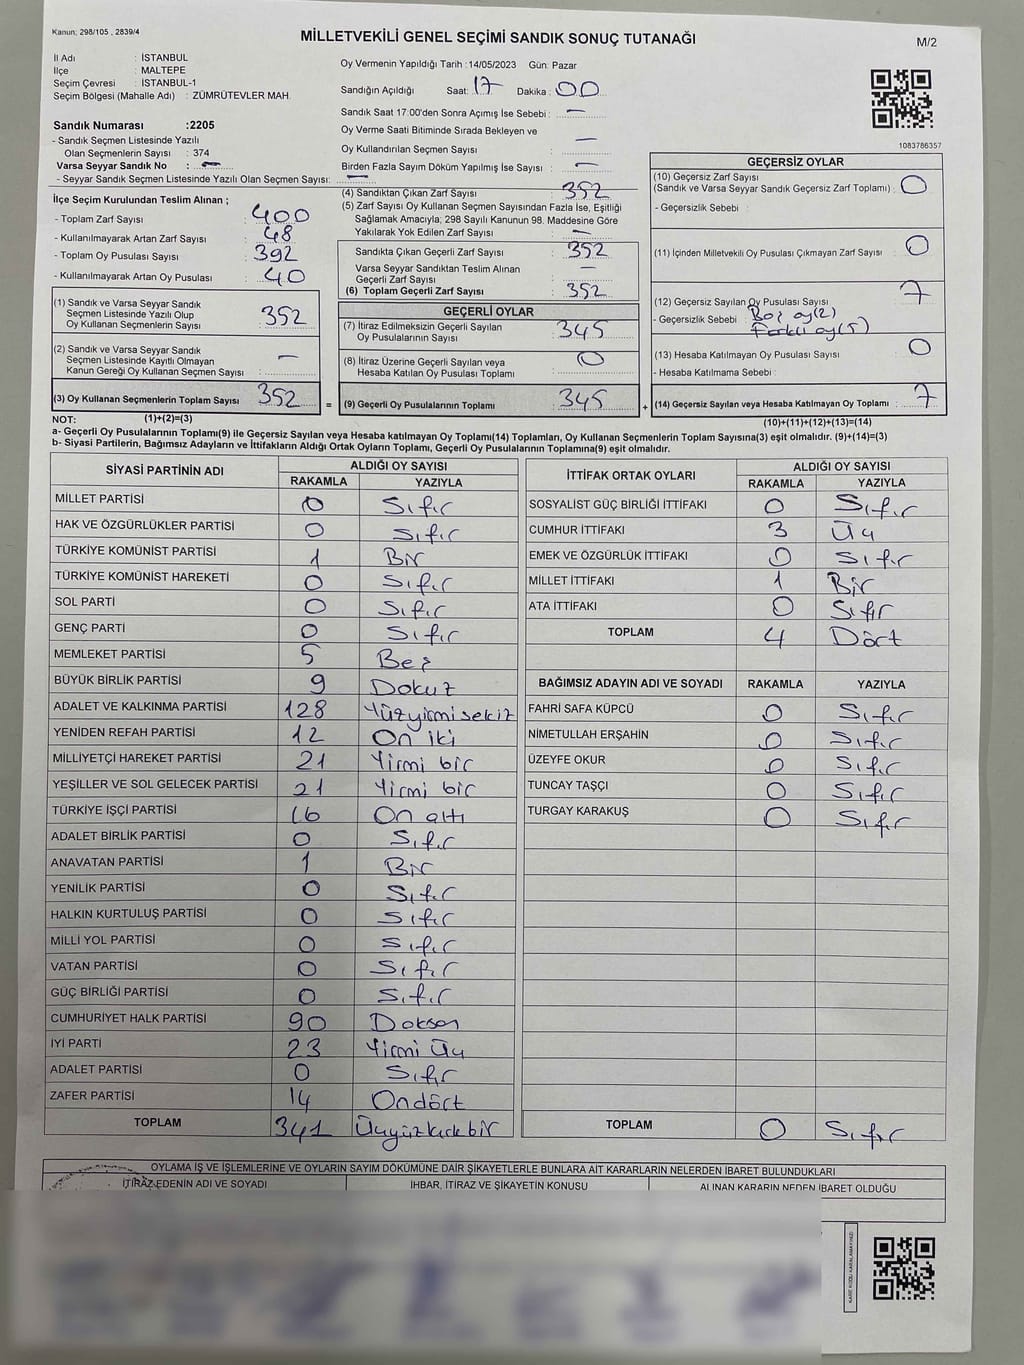 Kanun; 298/105 , 2839/4
MİLLETVEKİLİ GENEL SEÇİMİ SANDIK SONUÇ TUTANAĞI
M/2
İl Adı : İSTANBUL
İlçe : MALTEPE
Seçim Çevresi : İSTANBUL-1
Seçim Bölgesi (Mahalle Adı) : ZÜMRÜTEVLER MAH.
Oy Vermenin Yapıldığı Tarih :14/05/2023 Gün: Pazar
Sandığın Açıldığı Saat: 17 Dakika : 00
Sandık Saat 17:00'den Sonra Açımış İse Sebebi : —
Oy Verme Saati Bitiminde Sırada Bekleyen ve
Oy Kullandırılan Seçmen Sayısı : —
Birden Fazla Sayım Döküm Yapılmış İse Sayısı : —
1083786357
Sandık Numarası :2205
- Sandık Seçmen Listesinde Yazılı
Olan Seçmenlerin Sayısı : 374
Varsa Seyyar Sandık No : —
- Seyyar Sandık Seçmen Listesinde Yazılı Olan Seçmen Sayısı: —
İlçe Seçim Kurulundan Teslim Alınan ;
- Toplam Zarf Sayısı : 400
- Kullanılmayarak Artan Zarf Sayısı : 48
- Toplam Oy Pusulası Sayısı : 392
- Kullanılmayarak Artan Oy Pusulası : 40
(1) Sandık ve Varsa Seyyar Sandık
Seçmen Listesinde Yazılı Olup
Oy Kullanan Seçmenlerin Sayısı : 352
(2) Sandık ve Varsa Seyyar Sandık
Seçmen Listesinde Kayıtlı Olmayan
Kanun Gereği Oy Kullanan Seçmen Sayısı : —
(3) Oy Kullanan Seçmenlerin Toplam Sayısı : 352
(4) Sandıktan Çıkan Zarf Sayısı : 352
(5) Zarf Sayısı Oy Kullanan Seçmen Sayısından Fazla İse, Eşitliği
Sağlamak Amacıyla; 298 Sayılı Kanunun 98. Maddesine Göre
Yakılarak Yok Edilen Zarf Sayısı : —
Sandıkta Çıkan Geçerli Zarf Sayısı : 352
Varsa Seyyar Sandıktan Teslim Alınan
Geçerli Zarf Sayısı : —
(6) Toplam Geçerli Zarf Sayısı : 352
GEÇERLİ OYLAR
(7) İtiraz Edilmeksizin Geçerli Sayılan
Oy Pusulalarının Sayısı : 345
(8) İtiraz Üzerine Geçerli Sayılan veya
Hesaba Katılan Oy Pusulası Toplamı : 0
= (9) Geçerli Oy Pusulalarının Toplamı : 345
GEÇERSİZ OYLAR
(10) Geçersiz Zarf Sayısı
(Sandık ve Varsa Seyyar Sandık Geçersiz Zarf Toplamı) : 0
- Geçersizlik Sebebi :
(11) İçinden Milletvekili Oy Pusulası Çıkmayan Zarf Sayısı : 0
(12) Geçersiz Sayılan Oy Pusulası Sayısı : 7
- Geçersizlik Sebebi : Boş oy(2)
Farklı oy(5)
(13) Hesaba Katılmayan Oy Pusulası Sayısı : 0
- Hesaba Katılmama Sebebi :
+ (14) Geçersiz Sayılan veya Hesaba Katılmayan Oy Toplamı : 7
NOT: (1)+(2)=(3)
(10)+(11)+(12)+(13)=(14)
a- Geçerli Oy Pusulalarının Toplamı(9) ile Geçersiz Sayılan veya Hesaba katılmayan Oy Toplamı(14) Toplamları, Oy Kullanan Seçmenlerin Toplam Sayısına(3) eşit olmalıdır. (9)+(14)=(3)
b- Siyasi Partilerin, Bağımsız Adayların ve İttifakların Aldığı Ortak Oyların Toplamı, Geçerli Oy Pusulalarının Toplamına(9) eşit olmalıdır.
SİYASİ PARTİNİN ADI ALDIĞI OY SAYISI
RAKAMLA YAZIYLA
MİLLET PARTİSİ 0 Sıfır
HAK VE ÖZGÜRLÜKLER PARTİSİ 0 Sıfır
TÜRKİYE KOMÜNİST PARTİSİ 1 Bir
TÜRKİYE KOMÜNİST HAREKETİ 0 Sıfır
SOL PARTİ 0 Sıfır
GENÇ PARTİ 0 Sıfır
MEMLEKET PARTİSİ 5 Beş
BÜYÜK BİRLİK PARTİSİ 9 Dokuz
ADALET VE KALKINMA PARTİSİ 128 Yüzyirmisekiz
YENİDEN REFAH PARTİSİ 12 On iki
MİLLİYETÇİ HAREKET PARTİSİ 21 Yirmi bir
YEŞİLLER VE SOL GELECEK PARTİSİ 21 Yirmi bir
TÜRKİYE İŞÇİ PARTİSİ 16 On altı
ADALET BİRLİK PARTİSİ 0 Sıfır
ANAVATAN PARTİSİ 1 Bir
YENİLİK PARTİSİ 0 Sıfır
HALKIN KURTULUŞ PARTİSİ 0 Sıfır
MİLLİ YOL PARTİSİ 0 Sıfır
VATAN PARTİSİ 0 Sıfır
GÜÇ BİRLİĞİ PARTİSİ 0 Sıfır
CUMHURİYET HALK PARTİSİ 90 Doksan
İYİ PARTİ 23 Yirmi Üç
ADALET PARTİSİ 0 Sıfır
ZAFER PARTİSİ 14 Ondört
TOPLAM 341 Üçyüzkırkbir
İTTİFAK ORTAK OYLARI ALDIĞI OY SAYISI
RAKAMLA YAZIYLA
SOSYALİST GÜÇ BİRLİĞİ İTTİFAKI 0 Sıfır
CUMHUR İTTİFAKI 3 Üç
EMEK VE ÖZGÜRLÜK İTTİFAKI 0 Sıfır
MİLLET İTTİFAKI 1 Bir
ATA İTTİFAKI 0 Sıfır
TOPLAM 4 Dört
BAĞIMSIZ ADAYIN ADI VE SOYADI RAKAMLA YAZIYLA
FAHRİ SAFA KÜPCÜ 0 Sıfır
NİMETULLAH ERŞAHİN 0 Sıfır
ÜZEYFE OKUR 0 Sıfır
TUNCAY TAŞÇI 0 Sıfır
TURGAY KARAKUŞ 0 Sıfır
TOPLAM 0 Sıfır
OYLAMA İŞ VE İŞLEMLERİNE VE OYLARIN SAYIM DÖKÜMÜNE DAİR ŞİKAYETLERLE BUNLARA AİT KARARLARIN NELERDEN İBARET BULUNDUKLARI
İTİRAZ EDENİN ADI VE SOYADI İHBAR, İTİRAZ VE ŞİKAYETİN KONUSU ALINAN KARARIN NEDEN İBARET OLDUĞU
KARE KODU KARALAMAYINIZ!